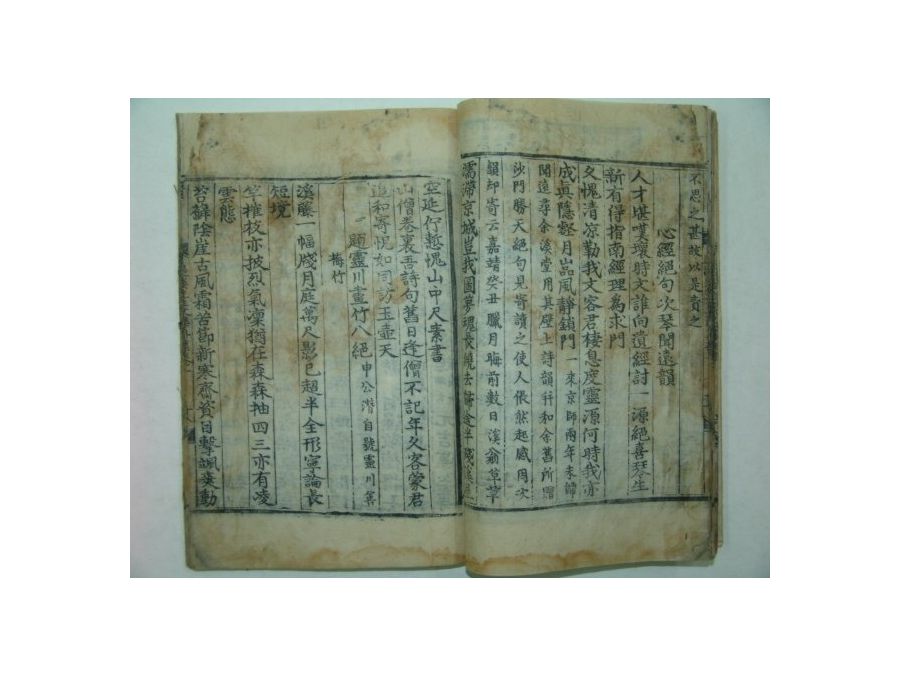 不思之甚故以是責之
心經絕句次琴聞遠韻
人才堪嘆壞時文誰向遺經討一源絕喜琴生
新有得指南經理為求門
久愧清凉勒我文容君棲息度靈源何時我亦
成眞隱壑月嵒風靜鎖門 一來京師兩年未歸
聞遠尋余溪堂用其壁上詩韻科和余舊所贈
沙門勝天絕句見寄讀之使人悵然起感用次
韻却寄云嘉靖癸丑臘月晦前數日溪翁草草
濡滯京城豈我圖夢魂長繞去
空延佇慙愧山中尺素書
山僧卷裏吾詩句舊日逢僧不記年久客蒙君
追和寄愧如同訪玉壺天
題靈川畫竹八絕 申公潛自號靈川
梅竹
溪藤一幅歲月庭萬尺影已超半全形寧論長
短境
竿摧枝亦披烈氣凜猶在森森抽四三亦有凌
雲態
苔蘚陰崖古風霜苦節新寒齋資目擊颯爽動